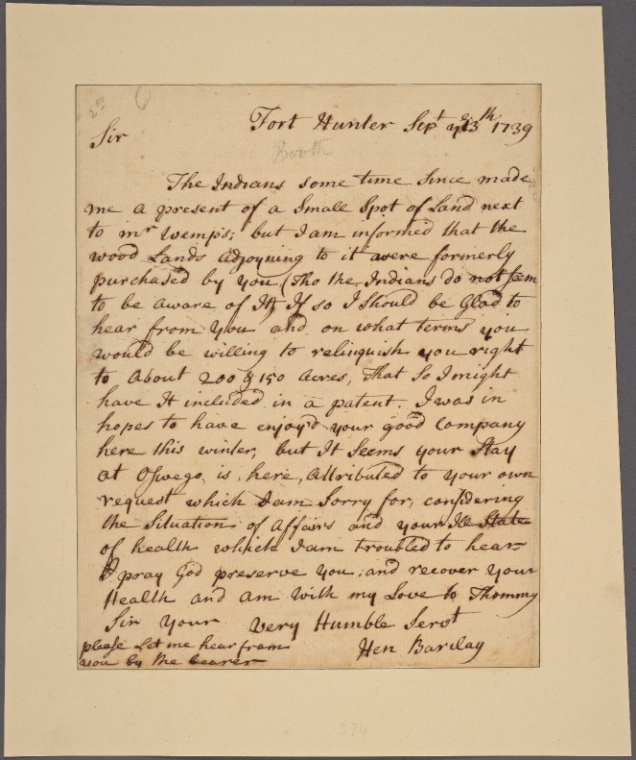 Fort Hunter Sept ye 13th 1739
Sir
Booth
The Indians some time Since made
me a present of a Small Spot of Land next
to mr Wemps; but I am informed that the
wood Lands adjoyning to it were formerly
purchased by you (Tho the Indians do not seem
to be aware of It) If so I Should be Glad to
hear from You and on what terms you
would be willing to relinquish you right
to About 200 & 150 Acres, That So I might
have It included in a patent. I was in
hopes to have enjoy'd your good Company
here this winter, but It Seems your Stay
at Oswego is, here, Attributed to your own
request which I am Sorry for, considering
the Situation of Affairs and your Ill State
of health which I am troubled to hear
I pray God preserve you, and recover your
Health and am with my Love to Thommy
Sir Your very Humble Servt
Hen Barclay
please Let me hear from
you by the bearer
374